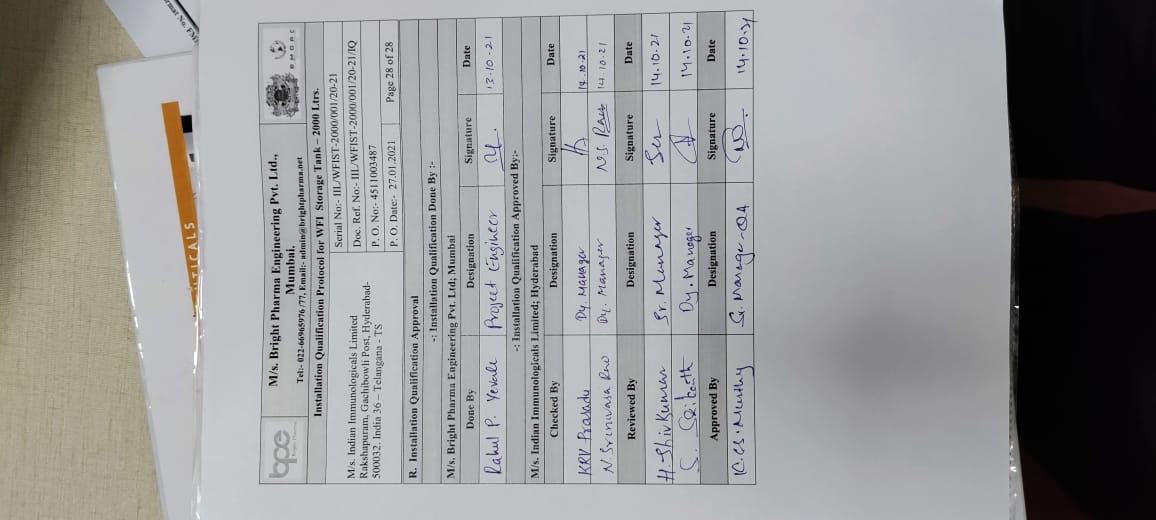 bpe
M/s. Bright Pharma Engineering Pvt. Ltd.,
Mumbai.
Tel:- 022-66965976 /77, Email:- admin@brightpharma.net
BMORC
Installation Qualification Protocol for WFI Storage Tank – 2000 Ltrs.
M/s. Indian Immunologicals Limited
Rakshapuram, Gachibowli Post, Hyderabad-
500032. India 36 – Telangana - TS
Serial No:- IIL/WFIST-2000/001/20-21
Doc. Ref. No:- IIL/WFIST-2000/001/20-21/IQ
P. O. No:- 4511003487
P. O. Date:- 27.01.2021 Page 28 of 28
R. Installation Qualification Approval
-: Installation Qualification Done By :-
M/s. Bright Pharma Engineering Pvt. Ltd; Mumbai
Done By Designation Signature Date
Rahul P. Yevale Project Engineer 13-10-21
-: Installation Qualification Approved By:-
M/s. Indian Immunologicals Limited; Hyderabad
Checked By Designation Signature Date
KRV Prasadu Dy. Manager 14.10.21
N Srinivasa Rao Dy. Manager N.S. Rao 14.10.21
Reviewed By Designation Signature Date
H. Shivkumar Sr. Manager 14.10.21
S. Dy. Manager 14.10.21
Approved By Designation Signature Date
K.CS. Murthy Sr. Manager-QA 14.10.21
UTICALS
rmat No. FM